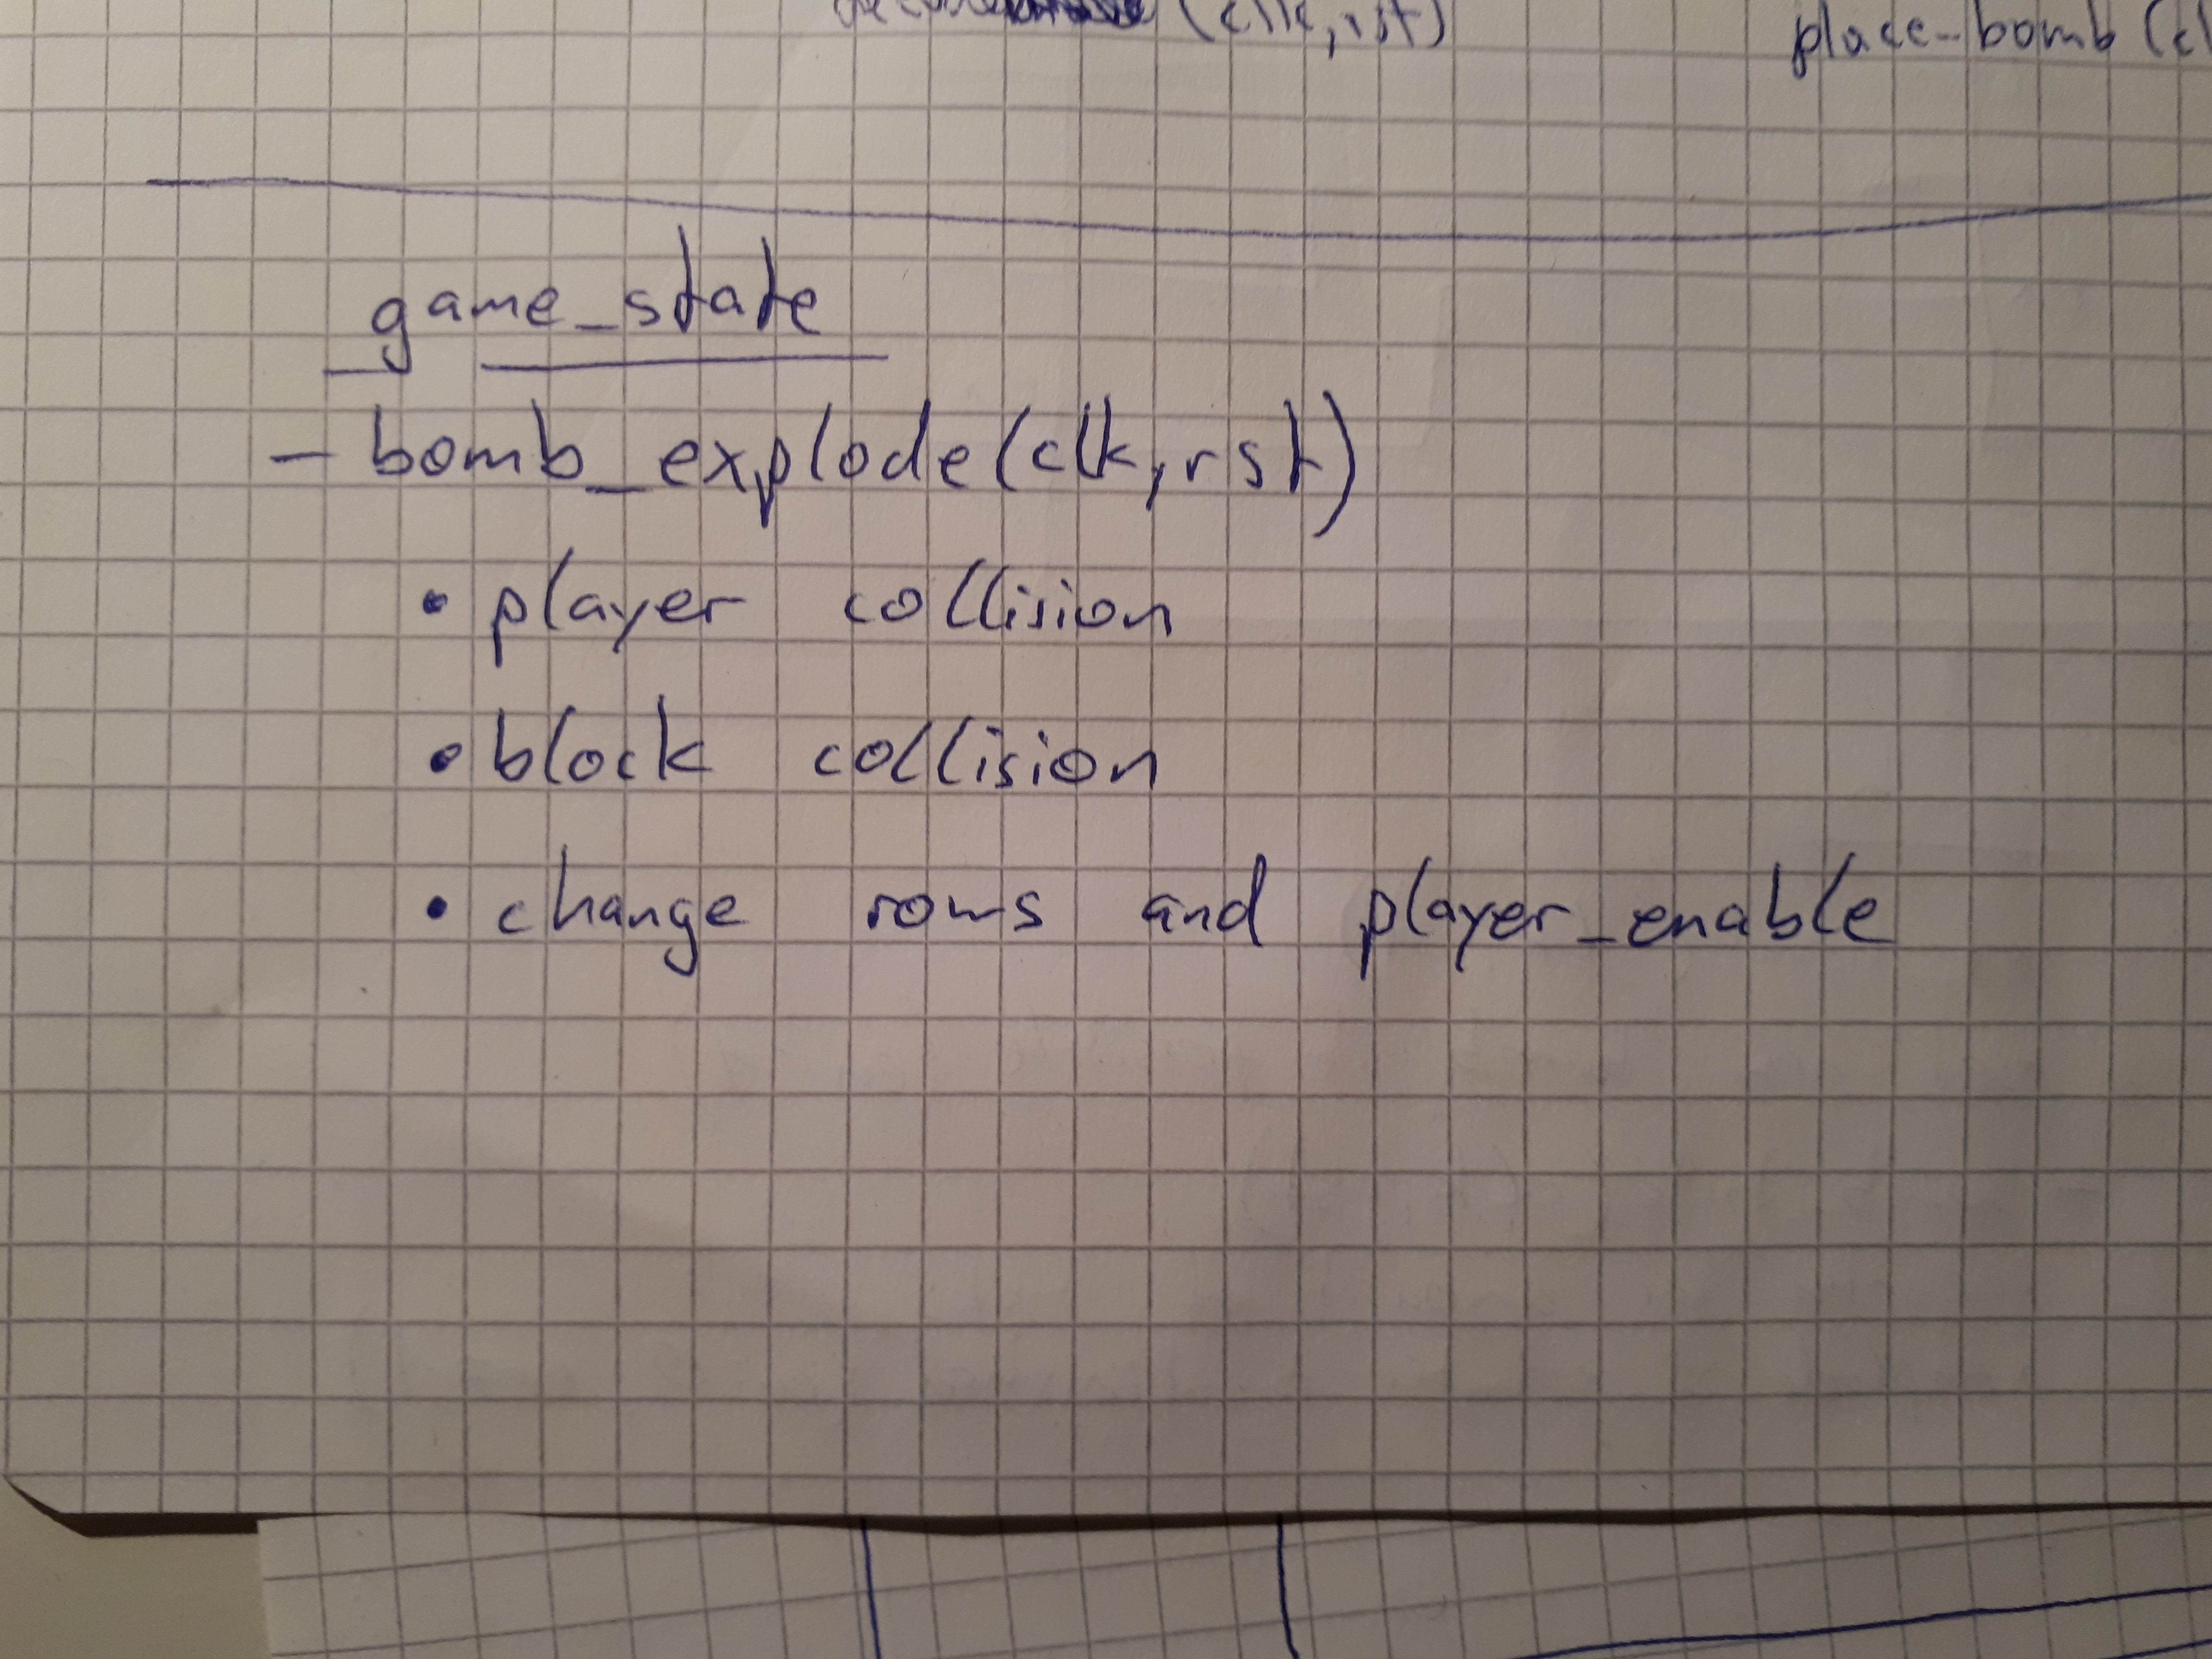 (clk, rst)
place_bomb (cl
game_state
- bomb_explode(clk, rst)
• player collision
• block collision
• change rows and player_enable